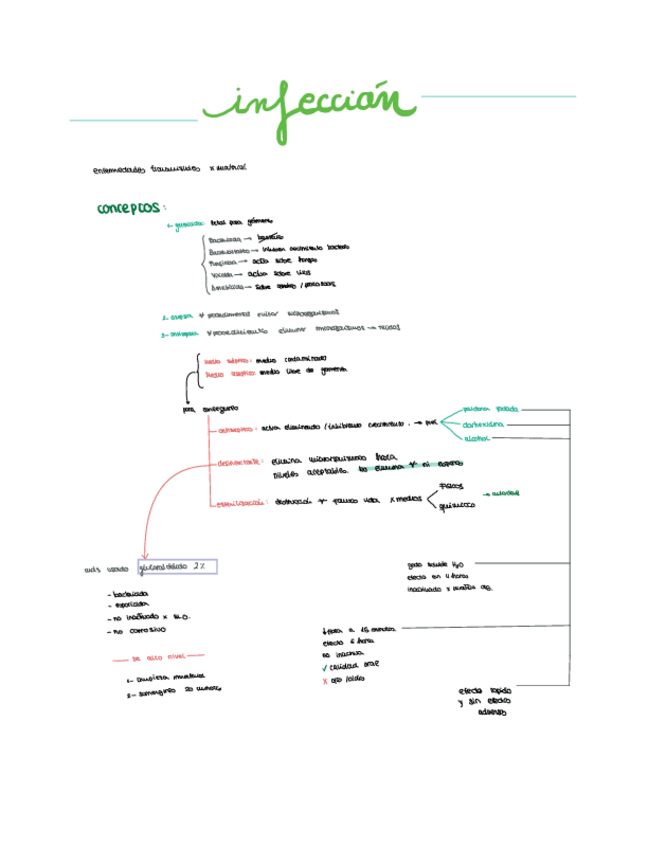 infección
enfermedades transmisibles x material
conceptos:
1- germicida: letal para gérmenes
Bactericida → bacterias
Bacteriostático → inhiben crecimiento bacteria
Fungicida → actúa sobre hongos
Viricida → actúa sobre virus
Amebicida → sobre
2- asepsia procedimiento evitar microorganismos
3- antisepsia procedimiento eliminar microorganismos → tejidos
Medio séptico: medio contaminado
Medio aséptico: medio libre de gérmenes
para conseguirlo
antiséptico: actúa eliminando /inhibiendo crecimiento. → piel
povidona yodada
clorhexidina
alcohol
desinfectante: elimina microorganismos hasta
niveles aceptables. no elimina ni esporas
esterilización: destrucción forma vida x medios
físicos
químicos
→ autoclave
más usado glutaraldehído 2%
- bactericida
- esporicida
- no inactivado x
- no corrosivo
de alto nivel
1- limpieza material
2- sumergirlo 20 minutos
soluble H₂O
efecto en 4 horas
inactivado x
15 minutos
efecto 6 horas
no inactiva
✓ cavidad oral
x ojo /oído
efecto rápido
y sin efecto
adverso